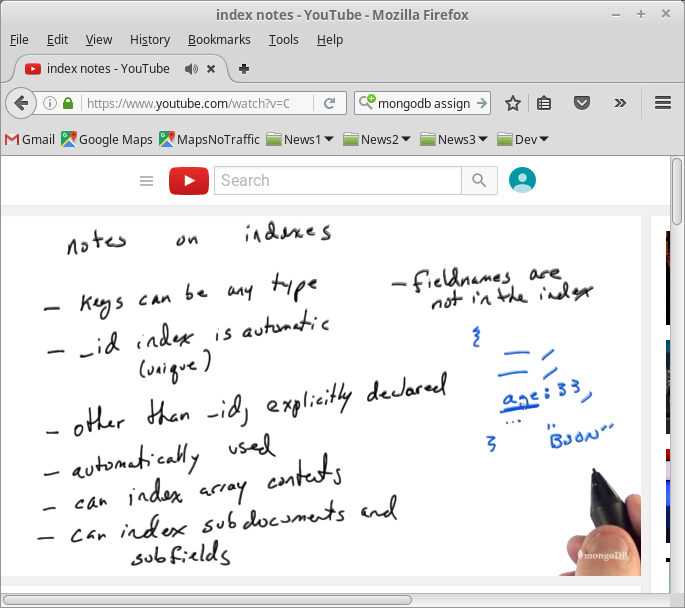 index notes - YouTube - Mozilla Firefox
File Edit View History Bookmarks Tools Help
index notes - YouTube
https://www.youtube.com/watch?v=C
mongodb assign
Gmail Google Maps MapsNoTraffic News1 News2 News3 Dev
Search
notes on indexes
- keys can be any type
- _id index is automatic
(unique)
- other than _id, explicitly declared
- automatically used
- can index array contents
- can index subdocuments and
subfields
- fieldnames are
not in the index
{
age: 33,
...
}
"BSON"
mongoDB